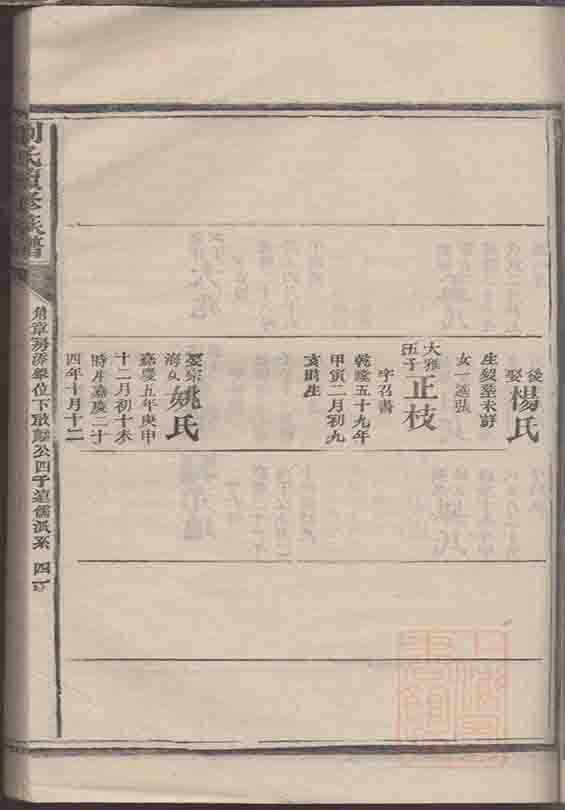 後娶 楊氏
生歿塟未詳
女一適張
大雅五子 正枝
字召書
乾隆五十九年
甲寅二月初九
亥時生
娶宗海女 姚氏
嘉慶五年庚申
十二月初十未
時生嘉慶二十
四年十月十二
劉氏續修族譜
下敢公四子
派系
四